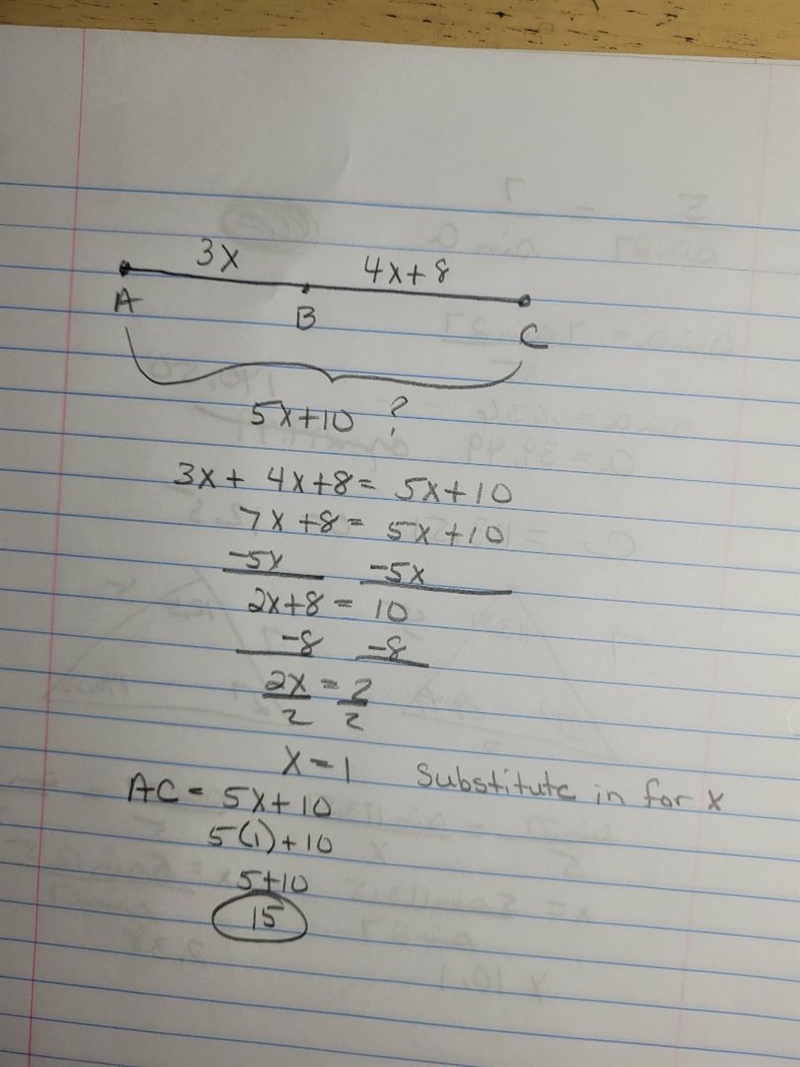 3x 4x+8
A B C
5x+10 ?
3x + 4x+8 = 5x+10
7x+8 = 5x+10
-5x -5x
2x+8 = 10
-8 -8
2x = 2
2 2
x = 1 Substitute in for x
AC = 5x+10
5(1)+10
5+10
15